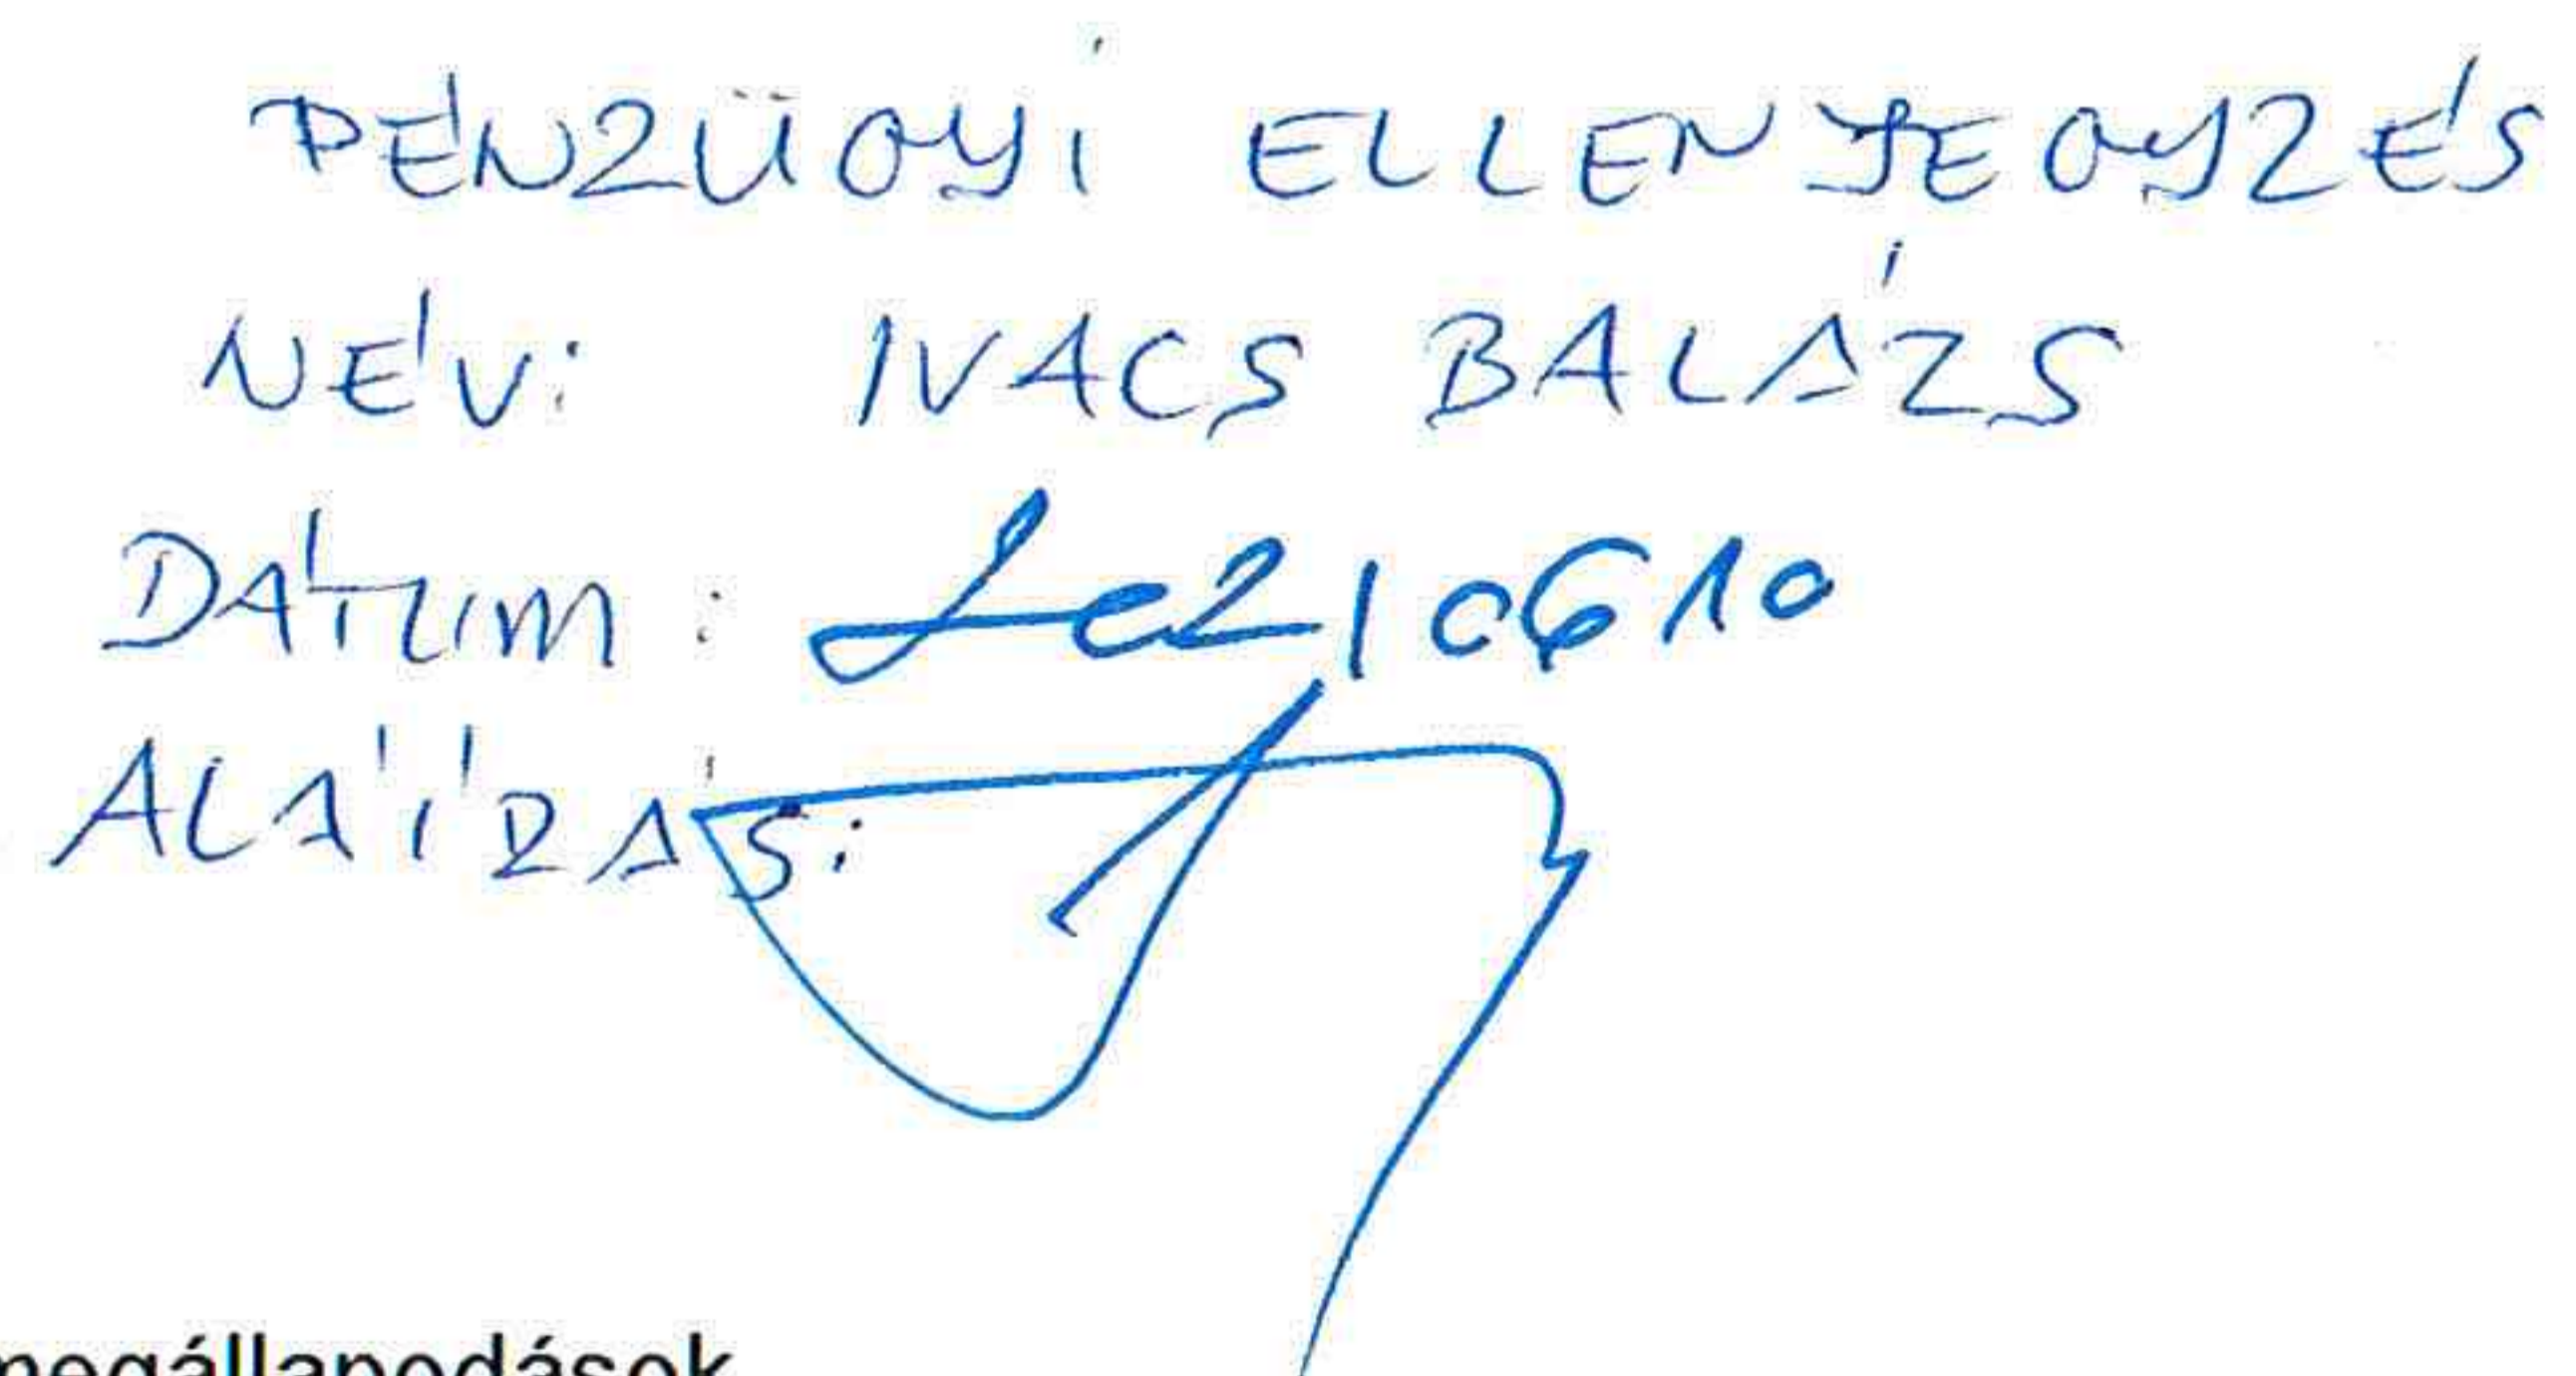 PÉNZÜGYI ELLENJEGYZÉS
NÉV: IVACS BALÁZS
DÁTUM: 20210610
ALÁÍRÁS:
megállapodások